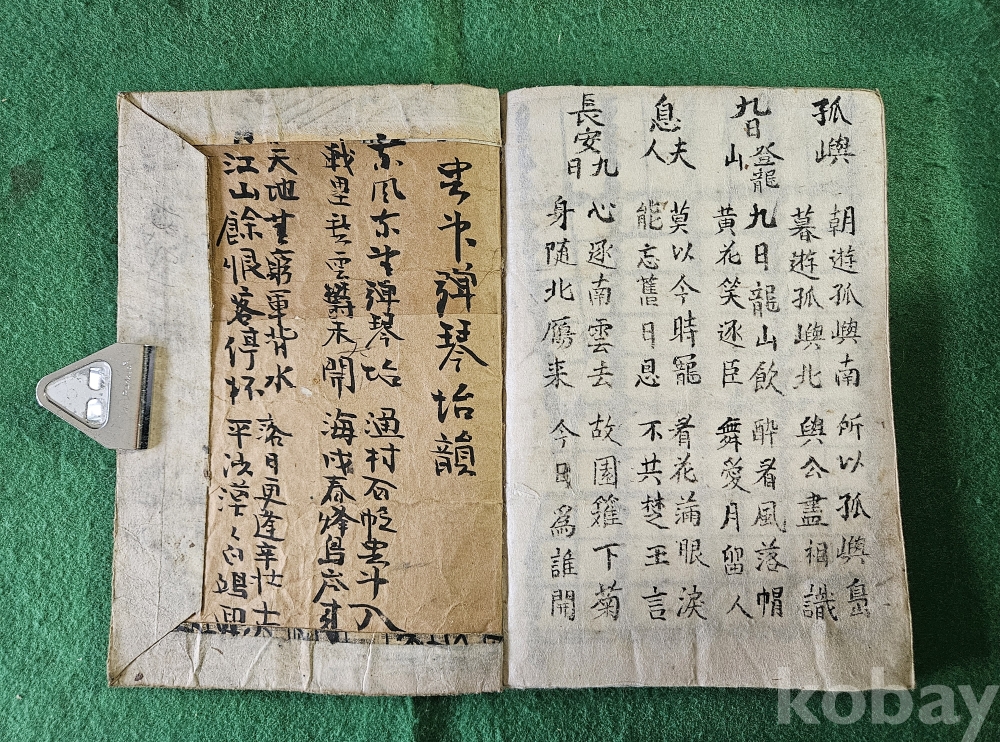 孤嶼
朝遊孤嶼南 所以孤嶼島
暮遊孤嶼北 與公盡相識
九日登龍山
九日龍山飲 醉看風落帽
黃花笑逐臣 舞愛月留人
息夫人
莫以今時寵 看花滿眼淚
能忘舊日恩 不共楚王言
長安九日
心逐南雲去 故園籬下菊
身隨北鴈来 今日為誰開
弾琴坮韻
風 弾琴坮 村石
壘 雲欝未開 海戍春烽鳥
天地無窮軍背水 落日更逢 壮士
江山餘恨客停杯 平沙漠々白鴎
kobay